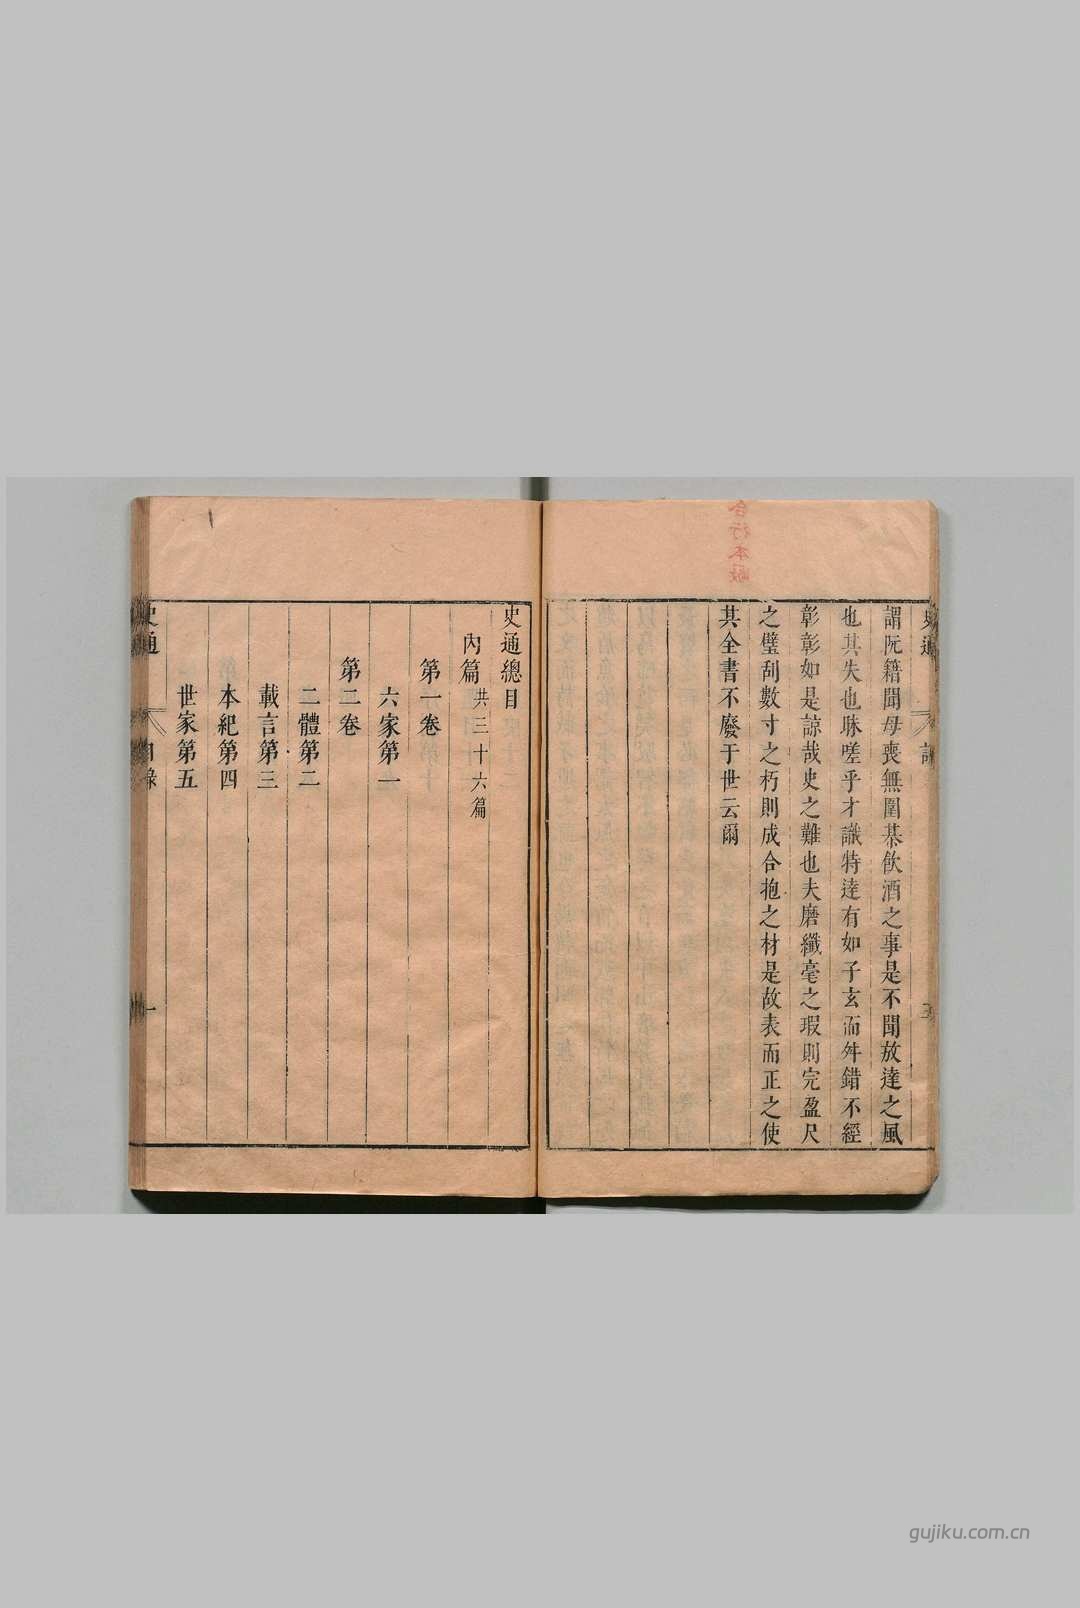 史通
謂阮籍聞母喪無圍棊飲酒之事是不聞放達之風
也其失也昧嗟乎才識特達有如子玄而舛錯不經
彰彰如是諒哉史之難也夫磨纖毫之瑕則完盈尺
之璧刮數寸之朽則成合抱之材是故表而正之使
其全書不廢于世云爾
史通總目
內篇共三十六篇
第一卷
六家第一
第二卷
二體第二
載言第三
本紀第四
世家第五
史通 目錄 一
gujiku.com.cn